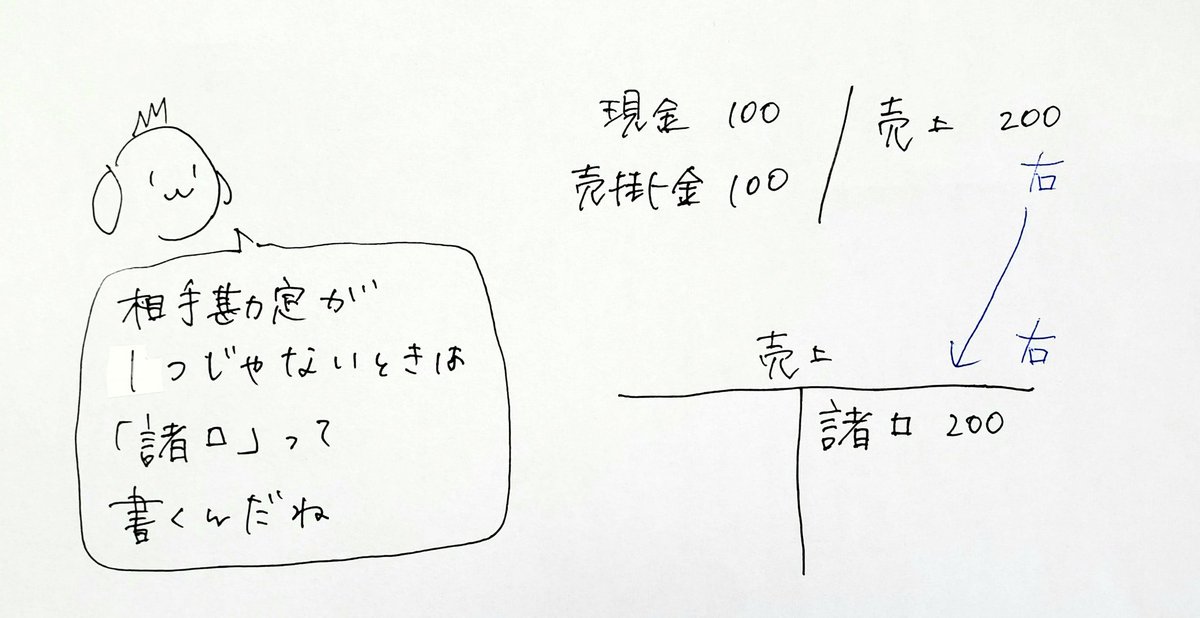 現金 100 / 売上 200
売掛金 100
右
売上 右
諸口 200
相手勘定が
1つじゃないときは
「諸口」って
書くんだね